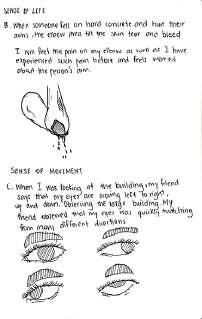 SENSE OF LIFE
B. When someone fell on hard concrete and hurt their
arms, the elbow area till the skin tear and bleed
I will feel the pain on my elbow as well as I have
experienced such pain before and feels worried
about the person's arm.
SENSE OF MOVEMENT
C. When I was looking at the building, my friend
says that my eyes are moving left to right,
up and down. Observing the large building. My
friend observed that my eyes was quickly twitching
from many different directions